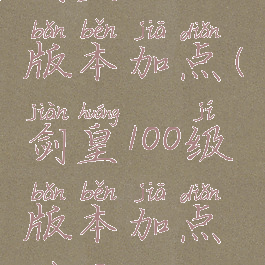 bǎn běn jiā diǎn
版本加点(
jiàn huáng jí
剑皇100级
bǎn běn jiā diǎn
版本加点